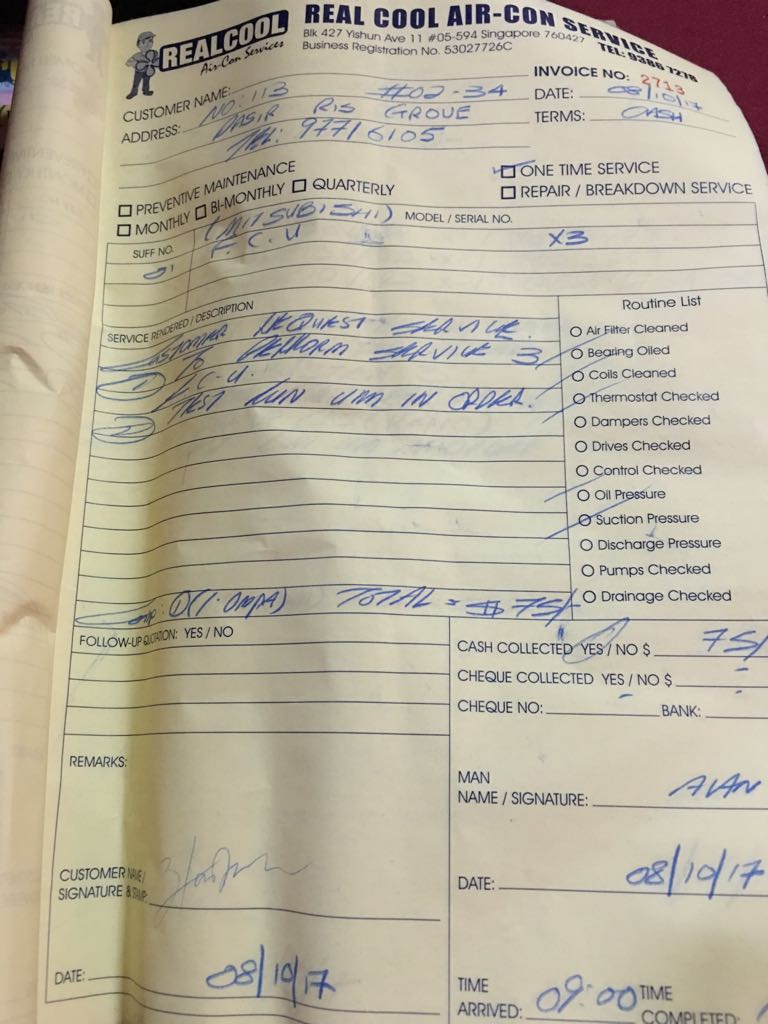 REALCOOL
Air-Con Services
REAL COOL AIR-CON SERVICE
Blk 427 Yishun Ave 11 #05-594 Singapore 760427
Business Registration No. 53027726C
TEL: 9386 7278
INVOICE NO: 2713
CUSTOMER NAME: NO: 113 #02-34
DATE: 08/10/17
ADDRESS: PASIR RIS GROVE
TERMS: CASH
TEL: 97716105
PREVENTIVE MAINTENANCE
ONE TIME SERVICE
MONTHLY BI-MONTHLY QUARTERLY
REPAIR / BREAKDOWN SERVICE
(MITSUBISHI) MODEL / SERIAL NO.
SUFF NO. F.C.U X3
SERVICE RENDERED / DESCRIPTION
CUSTOMER REQUEST SERVICE.
1 TO PERFORM SERVICE 3
F.C.U.
2 TEST RUN IN ORDER.
TOTAL = $75/
Routine List
Air Filter Cleaned
Bearing Oiled
Coils Cleaned
Thermostat Checked
Dampers Checked
Drives Checked
Control Checked
Oil Pressure
Suction Pressure
Discharge Pressure
Pumps Checked
Drainage Checked
FOLLOW-UP QUOTATION: YES / NO
CASH COLLECTED YES / NO $ 75/
CHEQUE COLLECTED YES / NO $ -
CHEQUE NO: BANK:
REMARKS:
MAN
NAME / SIGNATURE: ALAN
CUSTOMER NAME /
SIGNATURE & STAMP
DATE: 08/10/17
DATE: 08/10/17
TIME
ARRIVED: 09:00
TIME
COMPLETED: